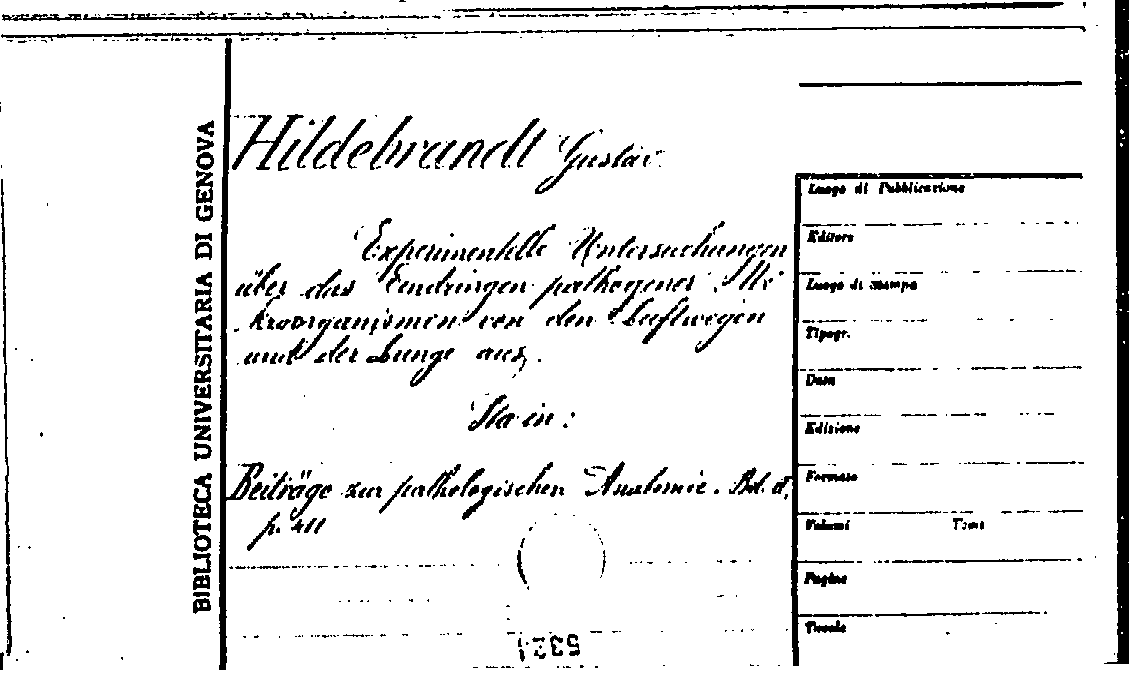 BIBLIOTECA UNIVERSITARIA DI GENOVA
Hildebrandt Gustav
Experimentelle Untersuchungen
über das Eindringen pathogener Mi
kroorganismen von den Luftwegen
und der Lunge aus.
Sta in:
Beiträge zur pathologischen Anatomie. Bd.
p. 411
5321
Luogo di Pubblicazione
Editore
Luogo di stampa
Tipogr.
Data
Edizione
Formato
Volumi Tomi
Pagine
Tavole